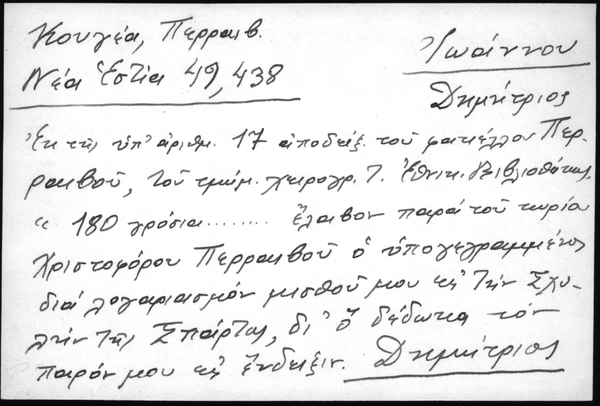 Κουγέα, Περραιβ.
Νέα Ἑστία 49, 438
Ἰωάννου
Δημήτριος
Ἐκ τῆς ὑπ' ἀριθμ. 17 ἀποδείξ. τοῦ φακέλλου Περ-
ραιβοῦ, τοῦ τμήμ. χειρογρ. τ. Ἐθνικ. Βιβλιοθήκης.
« 180 γρόσια........ ἔλαβον παρὰ τοῦ κυρίου
Χριστοφόρου Περραιβοῦ ὁ ὑπογεγραμμένος
διὰ λογαριασμόν μισθοῦ μου εἰς τὴν Σχο-
λήν τῆς Σπάρτας, δι' ὃ δέδωκα τόν
παρόν μου εἰς ἔνδειξιν. Δημήτριος